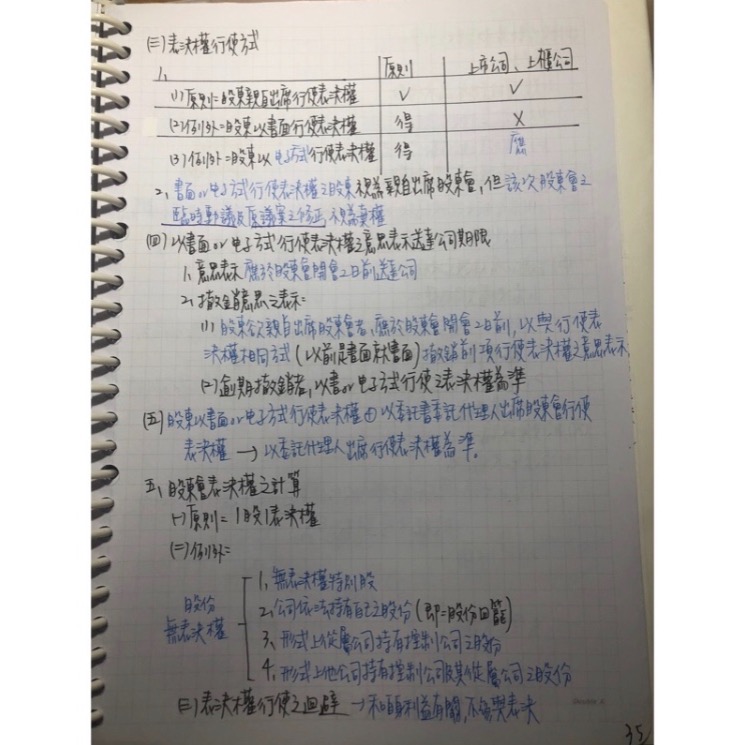 (三)表決權行使方式
1、 原則 上市公司、上櫃公司
(1)原則=股東親自出席行使表決權 ✓ ✓
(2)例外=股東以書面行使表決權 得 X
(3)例外=股東以電子方式行使表決權 得 應
2、書面or电子方式行使表決權之股東視為親自出席股東會,但該次股東會之
臨時動議及原議案之修正視為棄權
(四)以書面or电子方式行使表決權之意思表示送達公司期限
1、意思表示應於股東會開會2日前送達公司
2、撤銷意思之表示=
(1)股東欲親自出席股東會者,應於股東會開會2日前,以與行使表
決權相同方式(以前是書面就書面)撤銷前項行使表決權之意思表示
(2)逾期撤銷者,以書or电子方式行使之表決權為準
(五)股東以書面or电子方式行使表決權⊕以委託書委託代理人出席股東會行使
表決權→以委託代理人出席行使表決權為準。
五、股東會表決權之計算
(一)原則=1股1表決權
(二)例外=
股份
無表決權
1、無表決權特別股
2、公司依法持有自己之股份(即=股份回籠)
3、形式上從屬公司持有控制公司之股份
4、形式上他公司持有控制公司及其從屬公司之股份
(三)表決權行使之迴避→和自身利益有關,不得與表決
35